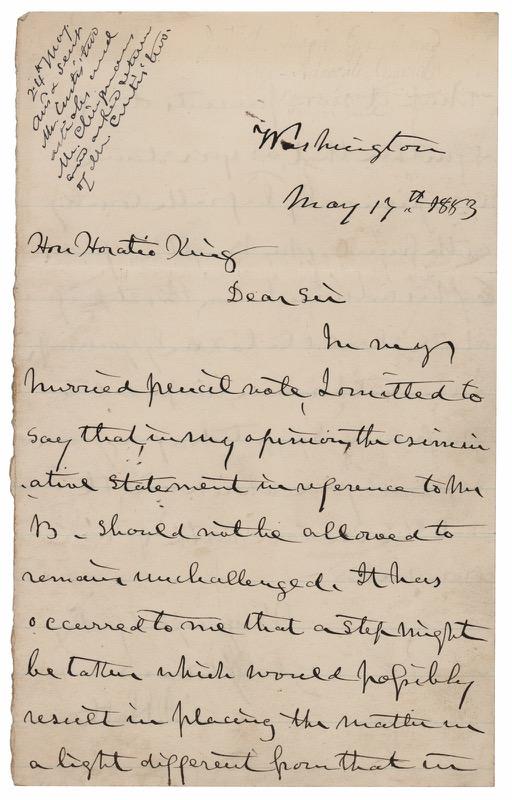 24th May
ans & sent
Mr. Curtis' two
articles and
Mr. Chipmans
and asked return
of Mr Curtis' two.
Washington
May 17th 1883
Hon Horatio King
Dear Sir
In my
hurried pencil note, I omitted to
say that, in my opinion, the crimin
ative statement in reference to Mr
B. should not be allowed to
remain unchallenged. It has
occurred to me that a step might
be taken which would possibly
result in placing the matter in
a light different from that in